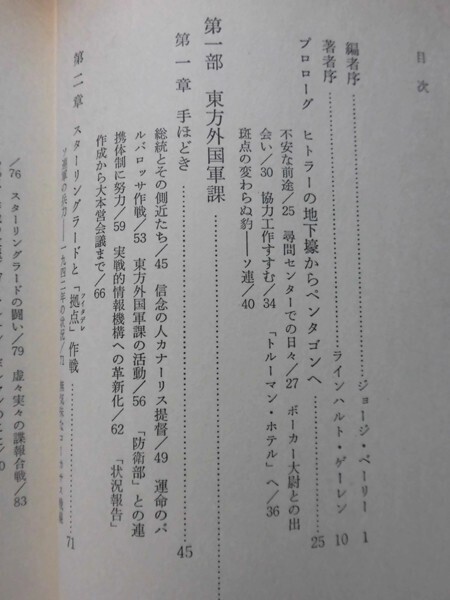 目次
編者序……ジョージ・ベーリー 1
著者序……ラインハルト・ゲーレン 10
プロローグ ヒトラーの地下壕からペンタゴンへ……25
不安な前途/25 尋問センターでの日々/27 ボーカー大尉との出
会い/30 協力工作すすむ/34 「トルーマン・ホテル」へ/36
斑点の変わらぬ豹――ソ連/40
第一部 東方外国軍課……45
第一章 手ほどき
総統とその側近たち/45 信念の人カナーリス提督/49 運命のバ
ルバロッサ作戦/53 東方外国軍課の活動/56 「防衛部」との連
携体制に努力/59 実戦的情報機構への革新化/62 「状況報告」
作成から大本営会議まで/66
第二章 スターリングラードと「拠点」作戦……71
ソ連軍の兵力――一九四二年の状況/71
/76 スターリングラードの闘い/79 虚々実々の諜報合戦/83